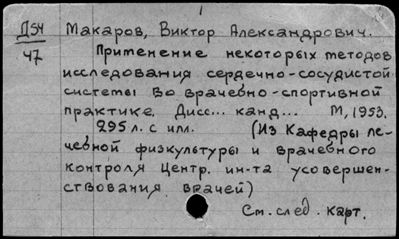 Д54 Макаров, Виктор Александрович.
47 Применение некоторых методов
исследования сердечно-сосудистой
системы во врачебно-спортивной
практике. Дисс... канд... М, 1953.
295 л. с илл. (Из Кафедры ле-
чебной физкультуры и врачебного
контроля Центр. ин-та усовершен-
ствования врачей)
См. след. карт.